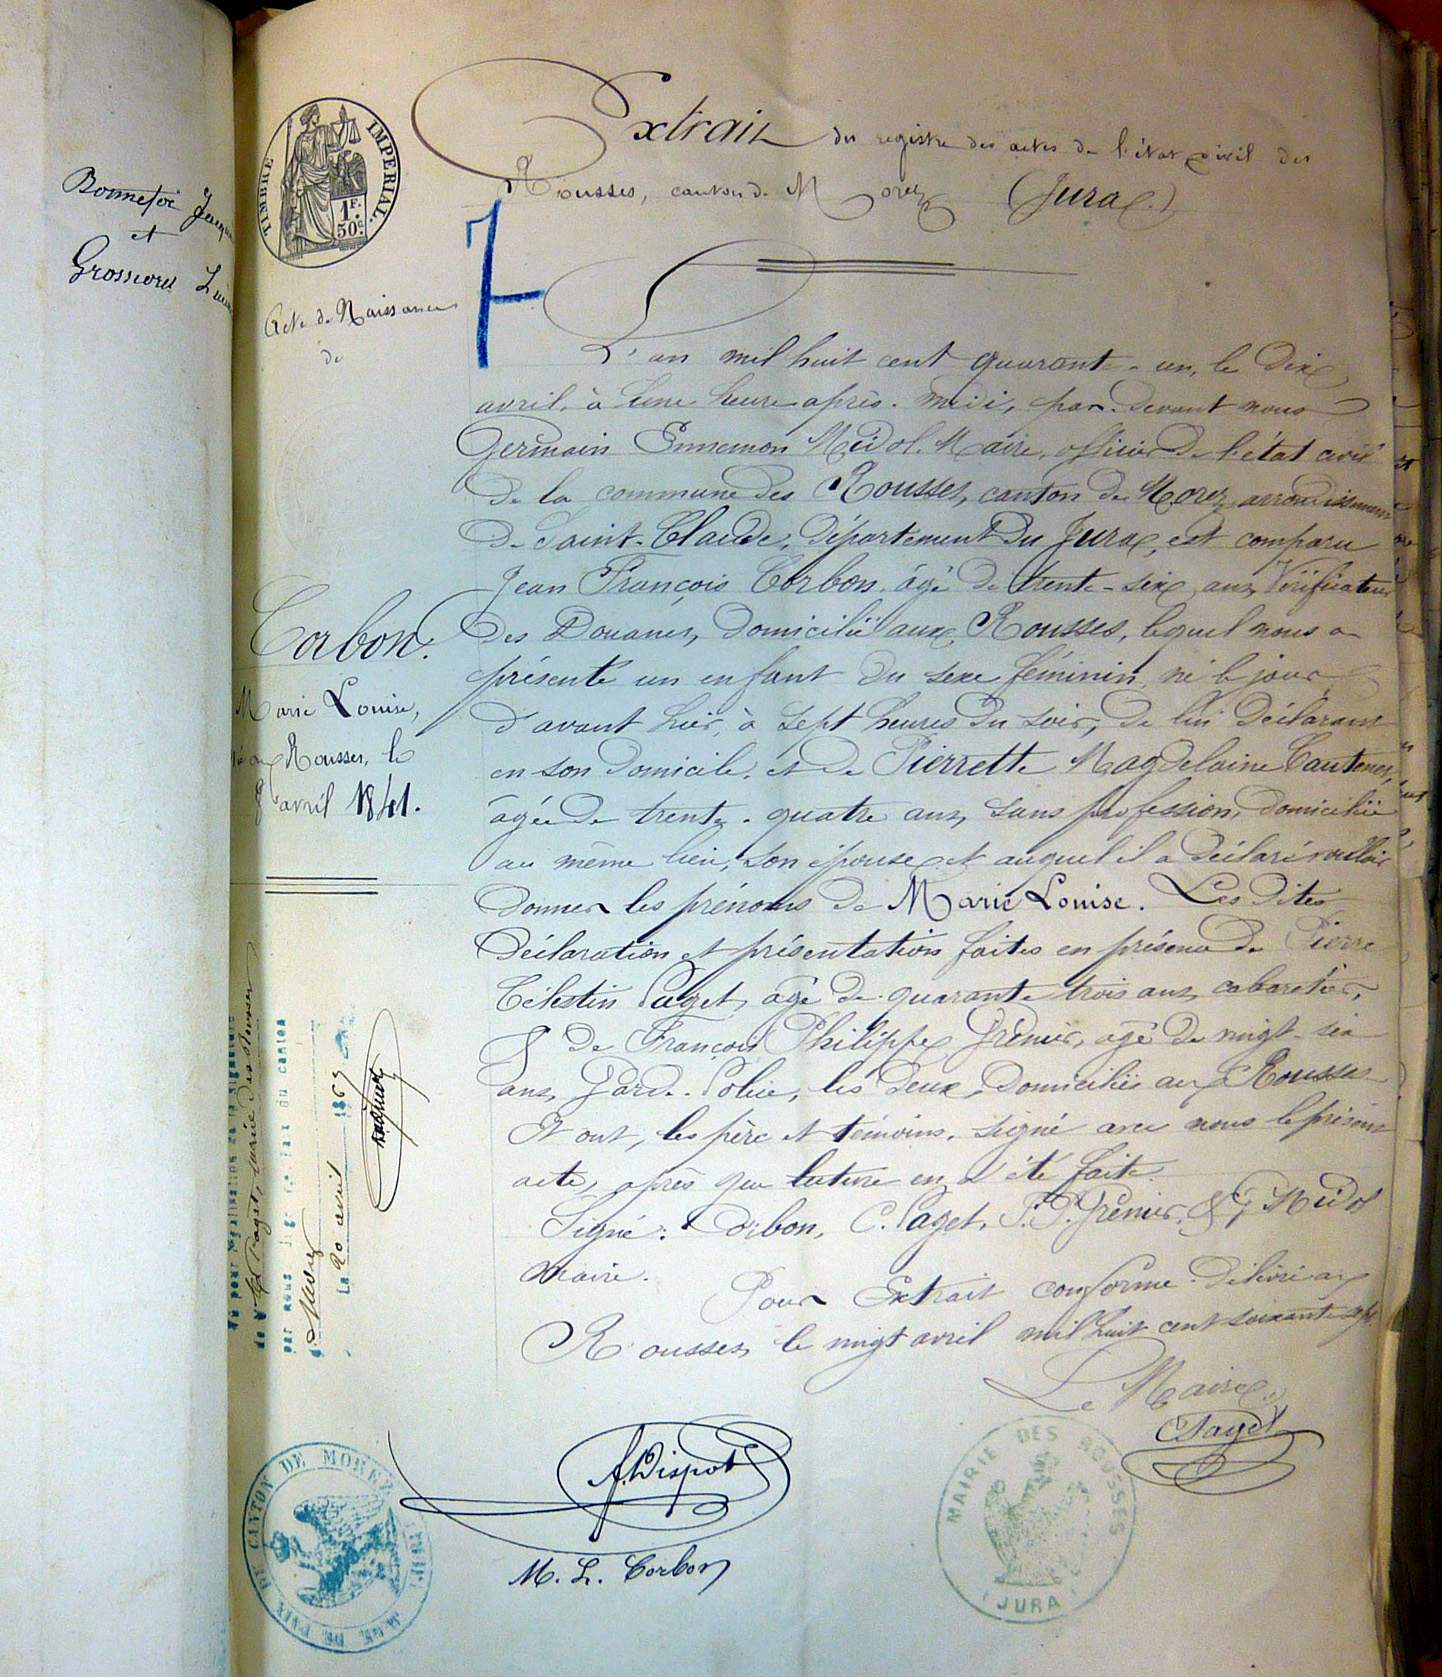 Bonnefoi
et
Grossiord
TIMBRE IMPERIAL.
1 F.
50 c.
Extrait du registre des actes de l'état civil des
Rousses, canton de Morez (Jura.)
Acte de Naissance
de
Corbon.
Marie Louise,
Rousses, le
8 avril 1841.
L'an mil huit cent quarante-un, le dix
avril, à une heure après-midi, par-devant nous
Germain Ennemon Midol, Maire, officier de l'état civil
de la commune des Rousses, canton de Morez, arrondissement
de Saint-Claude, département du Jura, est comparu
Jean François Corbon, âgé de trente-six ans, Vérificateur
des Douanes, domicilié aux Rousses, lequel nous a
présenté un enfant du sexe féminin, né le jour
d'avant hier, à sept heures du soir, de lui déclarant
en son domicile, et de Pierrette Magdelaine
âgée de trente-quatre ans, sans profession, domiciliée
au même lieu, son épouse et auquel il a déclaré vouloir
donner les prénoms de Marie Louise. Les dites
déclaration et présentation faites en présence de Pierre
Célestin Paget, âgé de quarante trois ans, cabaretier,
& de François Philippe Grenier, âgé de vingt-six
ans, Garde-Police, les deux domiciliés aux Rousses
Et ont, les père et témoins, signé avec nous le présent
acte, après que lecture en a été faite.
Signé: Corbon, C. Paget, F. P. Grenier, & G Midol
Maire.
Pour Extrait conforme. Délivré aux
Rousses le vingt avril mil huit cent soixante sept
Le Maire,
C Paget
M. L. Corbon
MAIRIE DES ROUSSES
(JURA)
CANTON DE MOREZ
JUGE DE PAIX DU
Vu pour légalisation de la signature
de Mr Paget, maire des Rousses
par nous juge de paix du canton
de Morez
Le 20 avril 1867